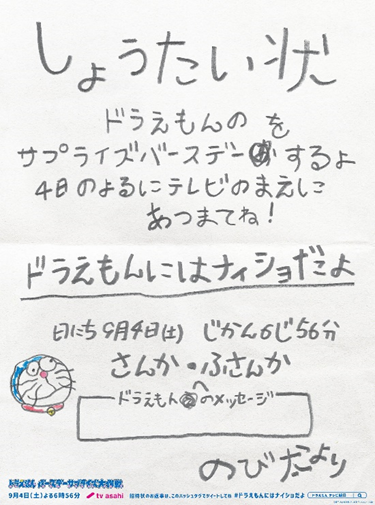 しょうたい状
ドラえもんの を
サプライズバースデーするよ
4日のよるにテレビのまえに
あつまてね!
ドラえもんにはナイショだよ
日にち9月4日(土) じかん6じ56分
さんか・ふさんか
へ
ドラえもんのメッセージ
のびたより
ドラえもん バースデーサプライズ大作戦
9月4日(土)よる6時56分 tv asahi 招待状のお返事は、このハッシュタグでツイートしてね #ドラえもんにはナイショだよ